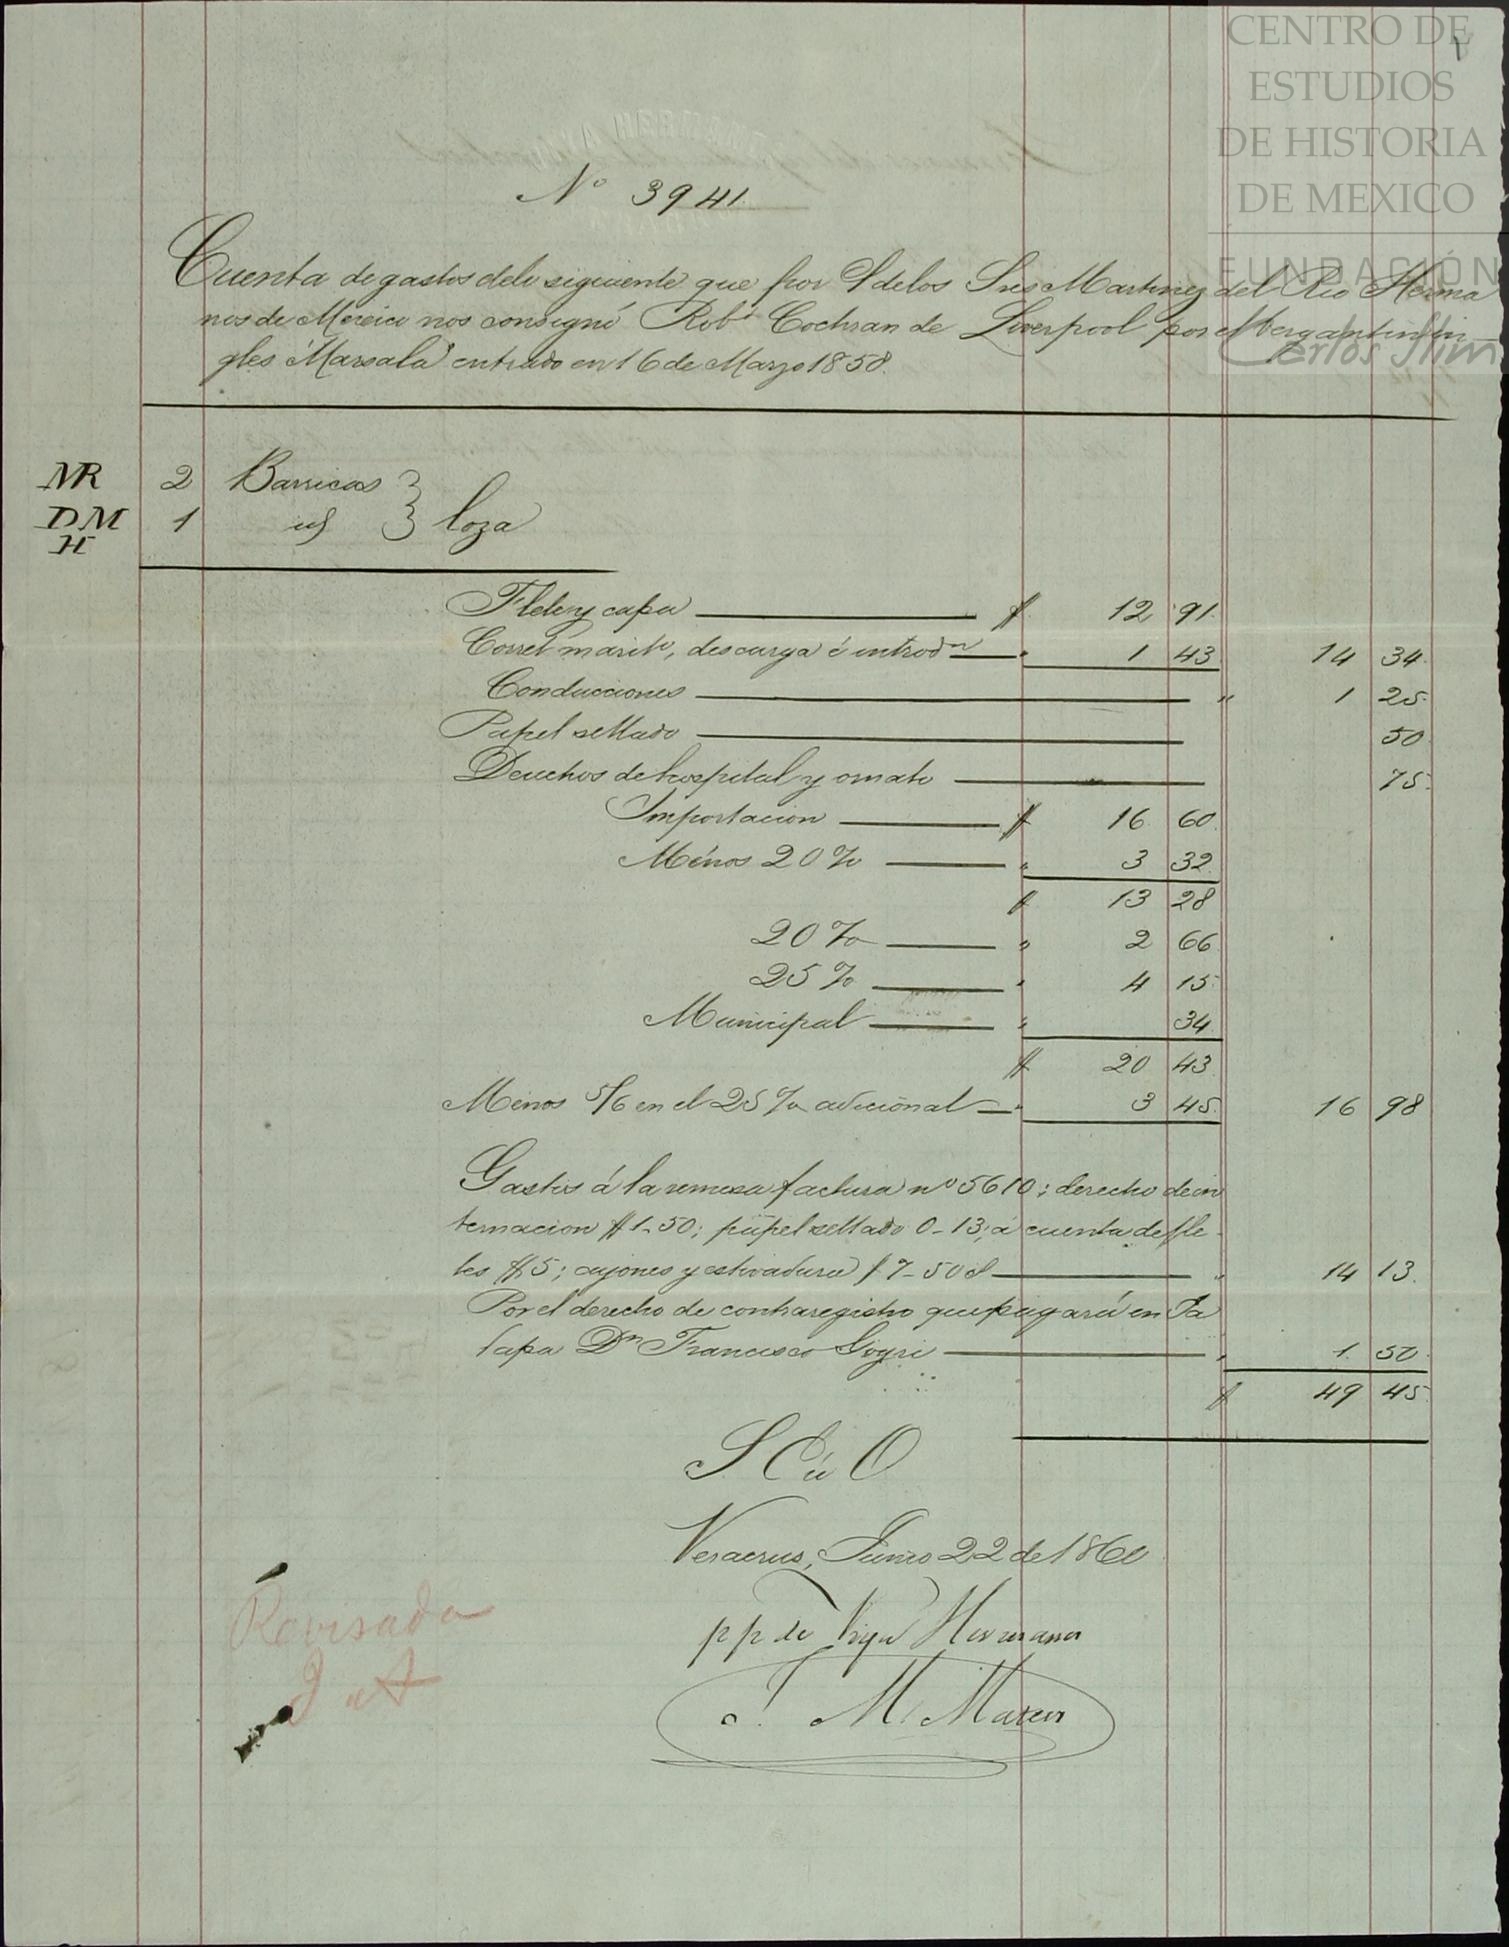 CENTRO DE
ESTUDIOS
DE HISTORIA
DE MEXICO
FUNDACIÓN
Carlos Slim
Nº 3941.
Cuenta de gastos delo siguiente que por Cta delos Sres Martinez del Rio Herma
nos de Mexico nos consignó Robt Cochran de Liverpool por el bergantin in
gles "Marsala" entrado en 16 de Marzo 1858.
MR 2 Barricas
DM 1 id loza
H
Flete y capa $ 12 91.
Corret marito, descarga é introdn " 1 43 14 34.
Conducciones " 1 25.
Papel sellado 50
Derechos de hospital y ornato 75.
Importacion $ 16 60.
Ménos 20% " 3 32
$ 13 28
20% " 2 66
25% " 4 15
Municipal " 34
$ 20 43
Menos 5/6 en el 25% adicional " 3 45. 16 98
Gastos á la remesa factura nº 5610; derecho de in
ternacion $1-50; papel sellado 0-13; á cuenta de fle
tes $5; cajones y estivadura $7-50 " 14 13.
Por el derecho de contraregistro que pagará en Ja
lapa Dn Francisco Goyri " 1. 50.
$ 49 45
S C ú O
Veracruz, Junio 22 de 1860
pp de Viya Hermanos
J. M. Marin
Revisada